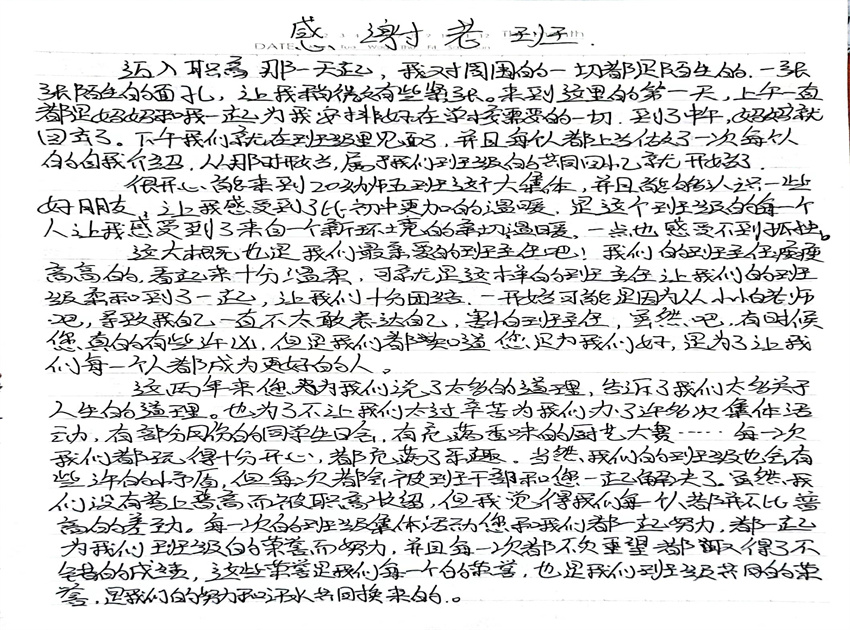 感谢老班.
DATE
迈入职高那一天起，我对周围的一切都是陌生的.一张
张陌生的面孔，让我稍微有些紧张。来到这里的第一天，上午一直
都是妈妈和我一起为我安排好在学校需要的一切.到了中午，妈妈就
回去了。下午我们就在到班级里见面了，并且每个人都上台做了一次每个人
的自我介绍.从那时候当，属于我们班级的共同回忆就开始了.
很开心能来到20幼师五班这个大集体，并且能够认识一些
好朋友，让我感受到了比初中更加的温暖.是这个班级的每一个
人让我感受到了来自一个新环境的亲切温暖.一点也感受不到孤独。
这大概就也是我们最亲爱的班主任吧！我们的班主任瘦瘦
高高的.看起来十分温柔，可就是这样的班主任让我们的班
级柔和到了一起，让我们十分团结.一开始可能是因为从小怕老师
吧，导致我自己一直不太敢表达自己，害怕班主任，虽然吧，有时候
您真的有些许凶，但是我们都知道您是为我们好，是为了让我
们每一个人都成为更好的人。
这两年来您为我们说了太多的道理，告诉了我们太多关于
人生的道理。也为了不让我们太过辛苦为我们办了许多次集体活
动，有部分月份的同学生日会.有充满香味的厨艺大赛……每一次
我们都玩得十分开心，都充满了乐趣.当然，我们的班级也会有
些许的小矛盾，但每次都会被班干部和您一起解决了。虽然我
们没有考上普高而被职高收留，但我觉得我们每个人都并不比普
高的差劲。每一次的班级集体活动您和我们都一起努力.都一起
为我们班级的荣誉而努力，并且每一次都不负重望都取得了不
错的成绩，这些荣誉是我们每一个的荣誉，也是我们班级共同的荣
誉.是我们的努力和汗水共同换来的。